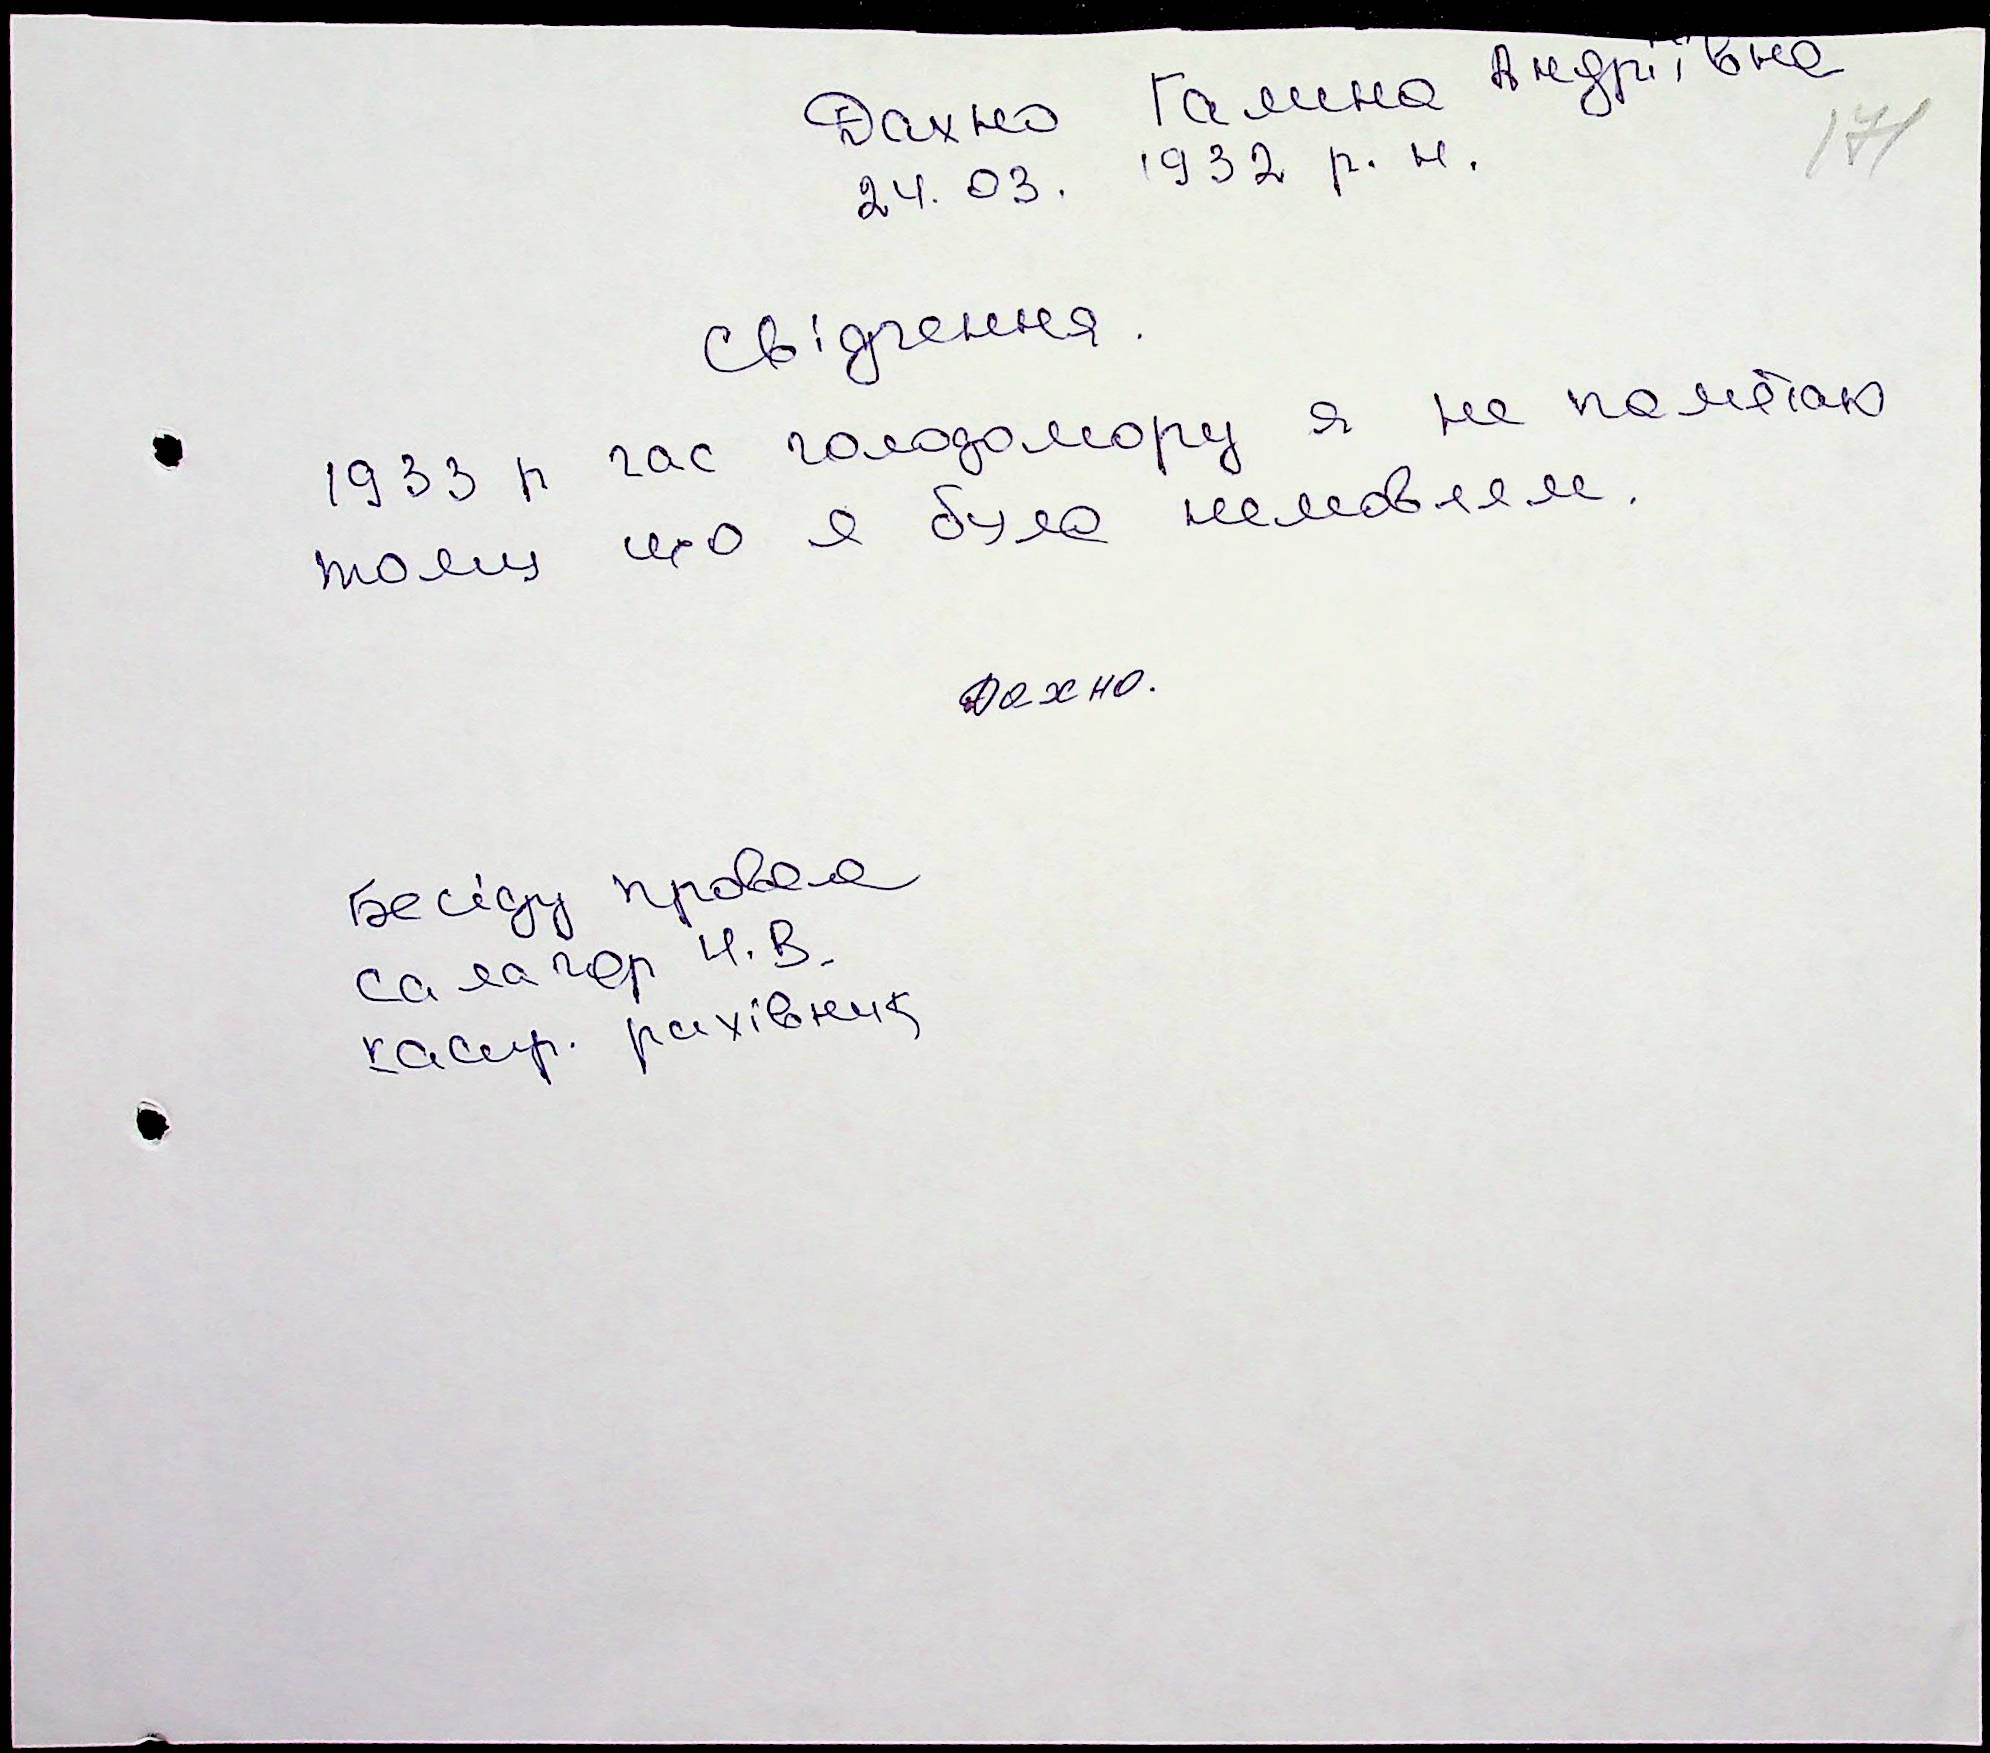 Дахно Галина Андріївна
171
24.03. 1932 р.н.
Свідчення.
1933 р час голодомору я не памятаю
тому що я була немовлям.
Дахно.
Бесіду провела
Салагор Н.В.
касир. рахівник